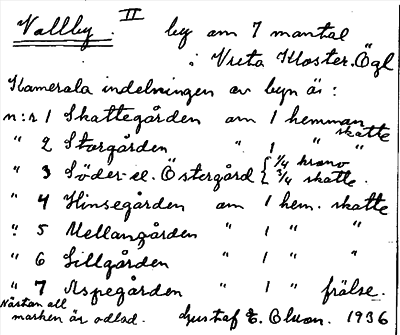 Vallby. II by om 7 mantal
i Vreta Kloster. Ögl
Kamerala indelningen av byn är:
n:r 1 Skattegården om 1 hemman skatte
" 2 Storgården " 1 " "
" 3 Söder- el. Östergård { 1/4 krono 3/4 skatte.
" 4 Hinsegården om 1 hem. skatte
" 5 Mellangården " 1 " "
" 6 Lillgården " 1 " "
" 7 Aspegården " 1 " frälse.
Nästan all
marken är odlad. Gustaf E. Olson. 1936